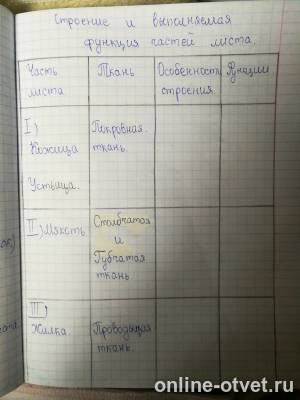 Строение и выполняемая
функция частей листа.
Часть листа
Ткань
Особенности строения.
Функции
I)
Кожица
Покровная ткань.
Устьица.
II) Мякоть
Столбчатая
и
Губчатая
ткань.
III)
Жилка.
Проводящая ткань.
online-otvet.ru